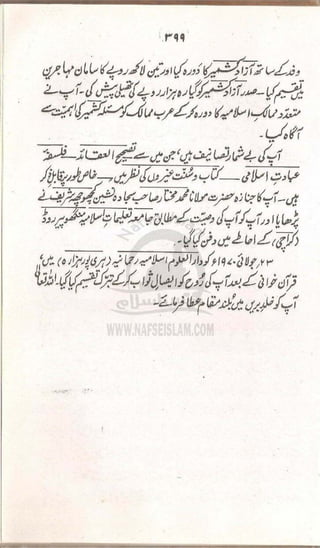 ۳۹۹
وفد کے ساتھ آزاد کشمیر کا دورہ کیا اور تین لاکھ روپے کا سامان مہاجرین
میں تقسیم کیا۔ صدر آزاد کشمیر کو گیارہ ہزار روپے کی تھیلی پیش کی۔ آپ نے
متعدد ممالک اسلامیہ کا دورہ کر کے عرب ممالک کو مسئلہ کشمیر کی اہمیت سے
آگاہ کیا۔
آپ کی بے شمار تصانیف ہیں، جن میں سے تصحیح العقائد، فلسفۂ
عبادت اسلامی، کتاب و سنت غیروں کی نظر میں، خاص طور پر قابل ذکر
ہیں۔ آپ کا جنازہ حضرت مولانا محمد مختار صاحب سجادہ نشین کچھوچھہ شریف نے
پڑھایا اور آپ کو آپ کی وصیت کے مطابق جامعہ تعلیمات اسلامیہ منگھوپیر روڈ
(کراچی) کے احاطے میں دفن کیا گیا۔
۲۳ جولائی ۱۹۷۰ء کو دارالعلوم اسلامیہ رحمانیہ (ہری پور ہزارہ) میں
قرآن خوانی کے بعد آپ کی روح کو ایصال ثواب کر کے تبرک تقسیم کیا گیا۔ اللہ تعالیٰ
آپ کو خلد بریں میں بلند مقام عطا فرمائے۔
WWW.NAFSEISLAM.COM